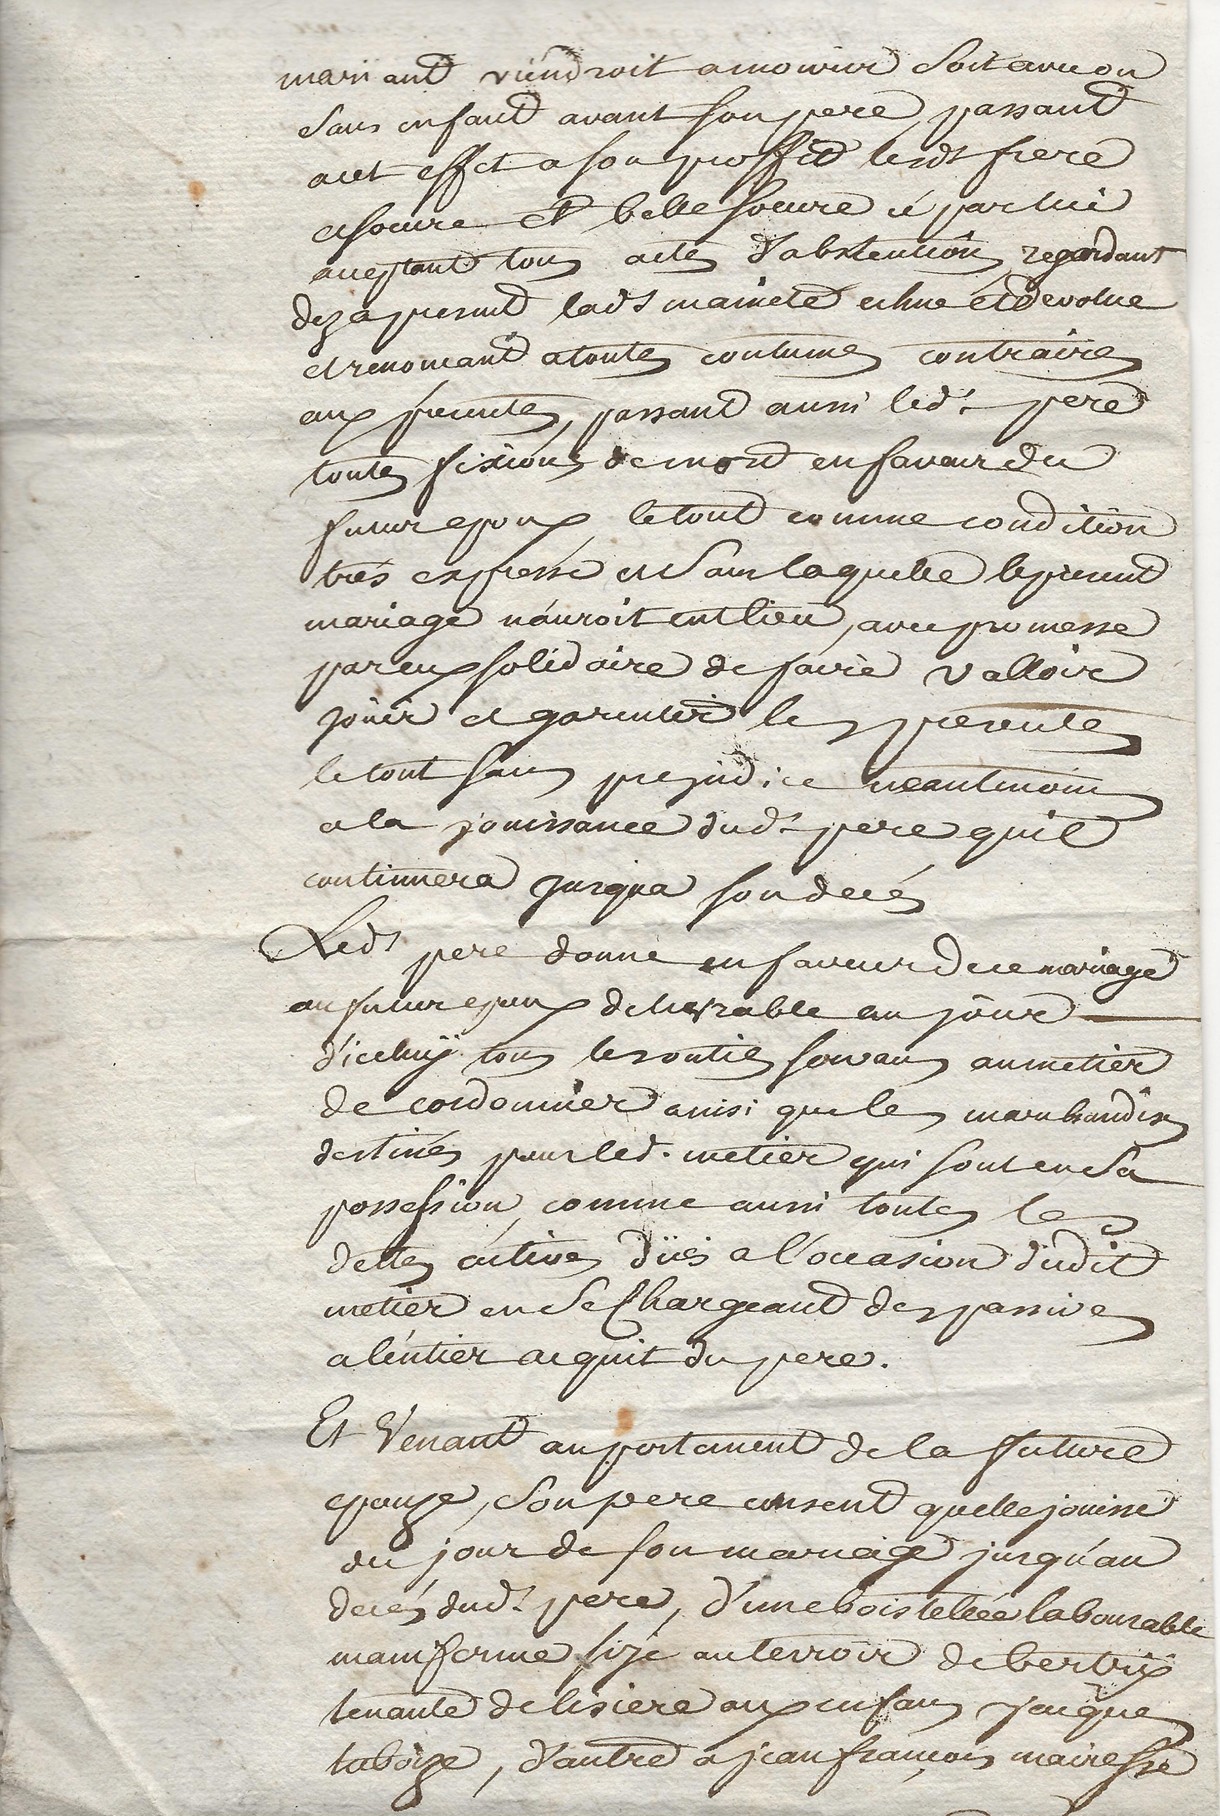 mariant viendroit a mourir soit avec ou
sans enfant avant son pere, passant
a cet effet a son proffit lesdt frere
et soeure et belle soeure cÿ par lui
acceptant tous actes d'abstention, regardant
dez a present ladt maineté echue et devolue
et renoncant a toutes coutumes contraires
aux presentes, passant aussi ledt pere
toutes fixions de mort en faveur du
futur epoux, le tout comme condition
très expresse et sans laquelle le present
mariage n'auroit eut lieu, avec promesse
par eux solidaire de faire valloir
jouir et garentir les presentes
le tout sans prejudice neantmoins
a la jouissance dudt pere qu'il
continuera jusqua son decés
Ledt pere donne en faveur de ce mariage
au futur epoux delivrable au jour
d'iceluÿ tous les outils servans au metier
de cordonnier ainsi que les marchandises
destinés pour led. metier qui sont en sa
possession, comme aussi toutes les
dettes actives düës a l'occasion dudit
metier en se chargeant des passives
a l'entier acquit du pere.
Et venant au portement de la future
epouze, son pere consent quelle jouisse
du jour de son mariage jusqu'au
decés dudt pere, d'une boistelée labourable
mainferme size au terroir de bertrÿ
tenante de lisiere aux enfans jacques
taboize, d'autre a jean françois mairesse